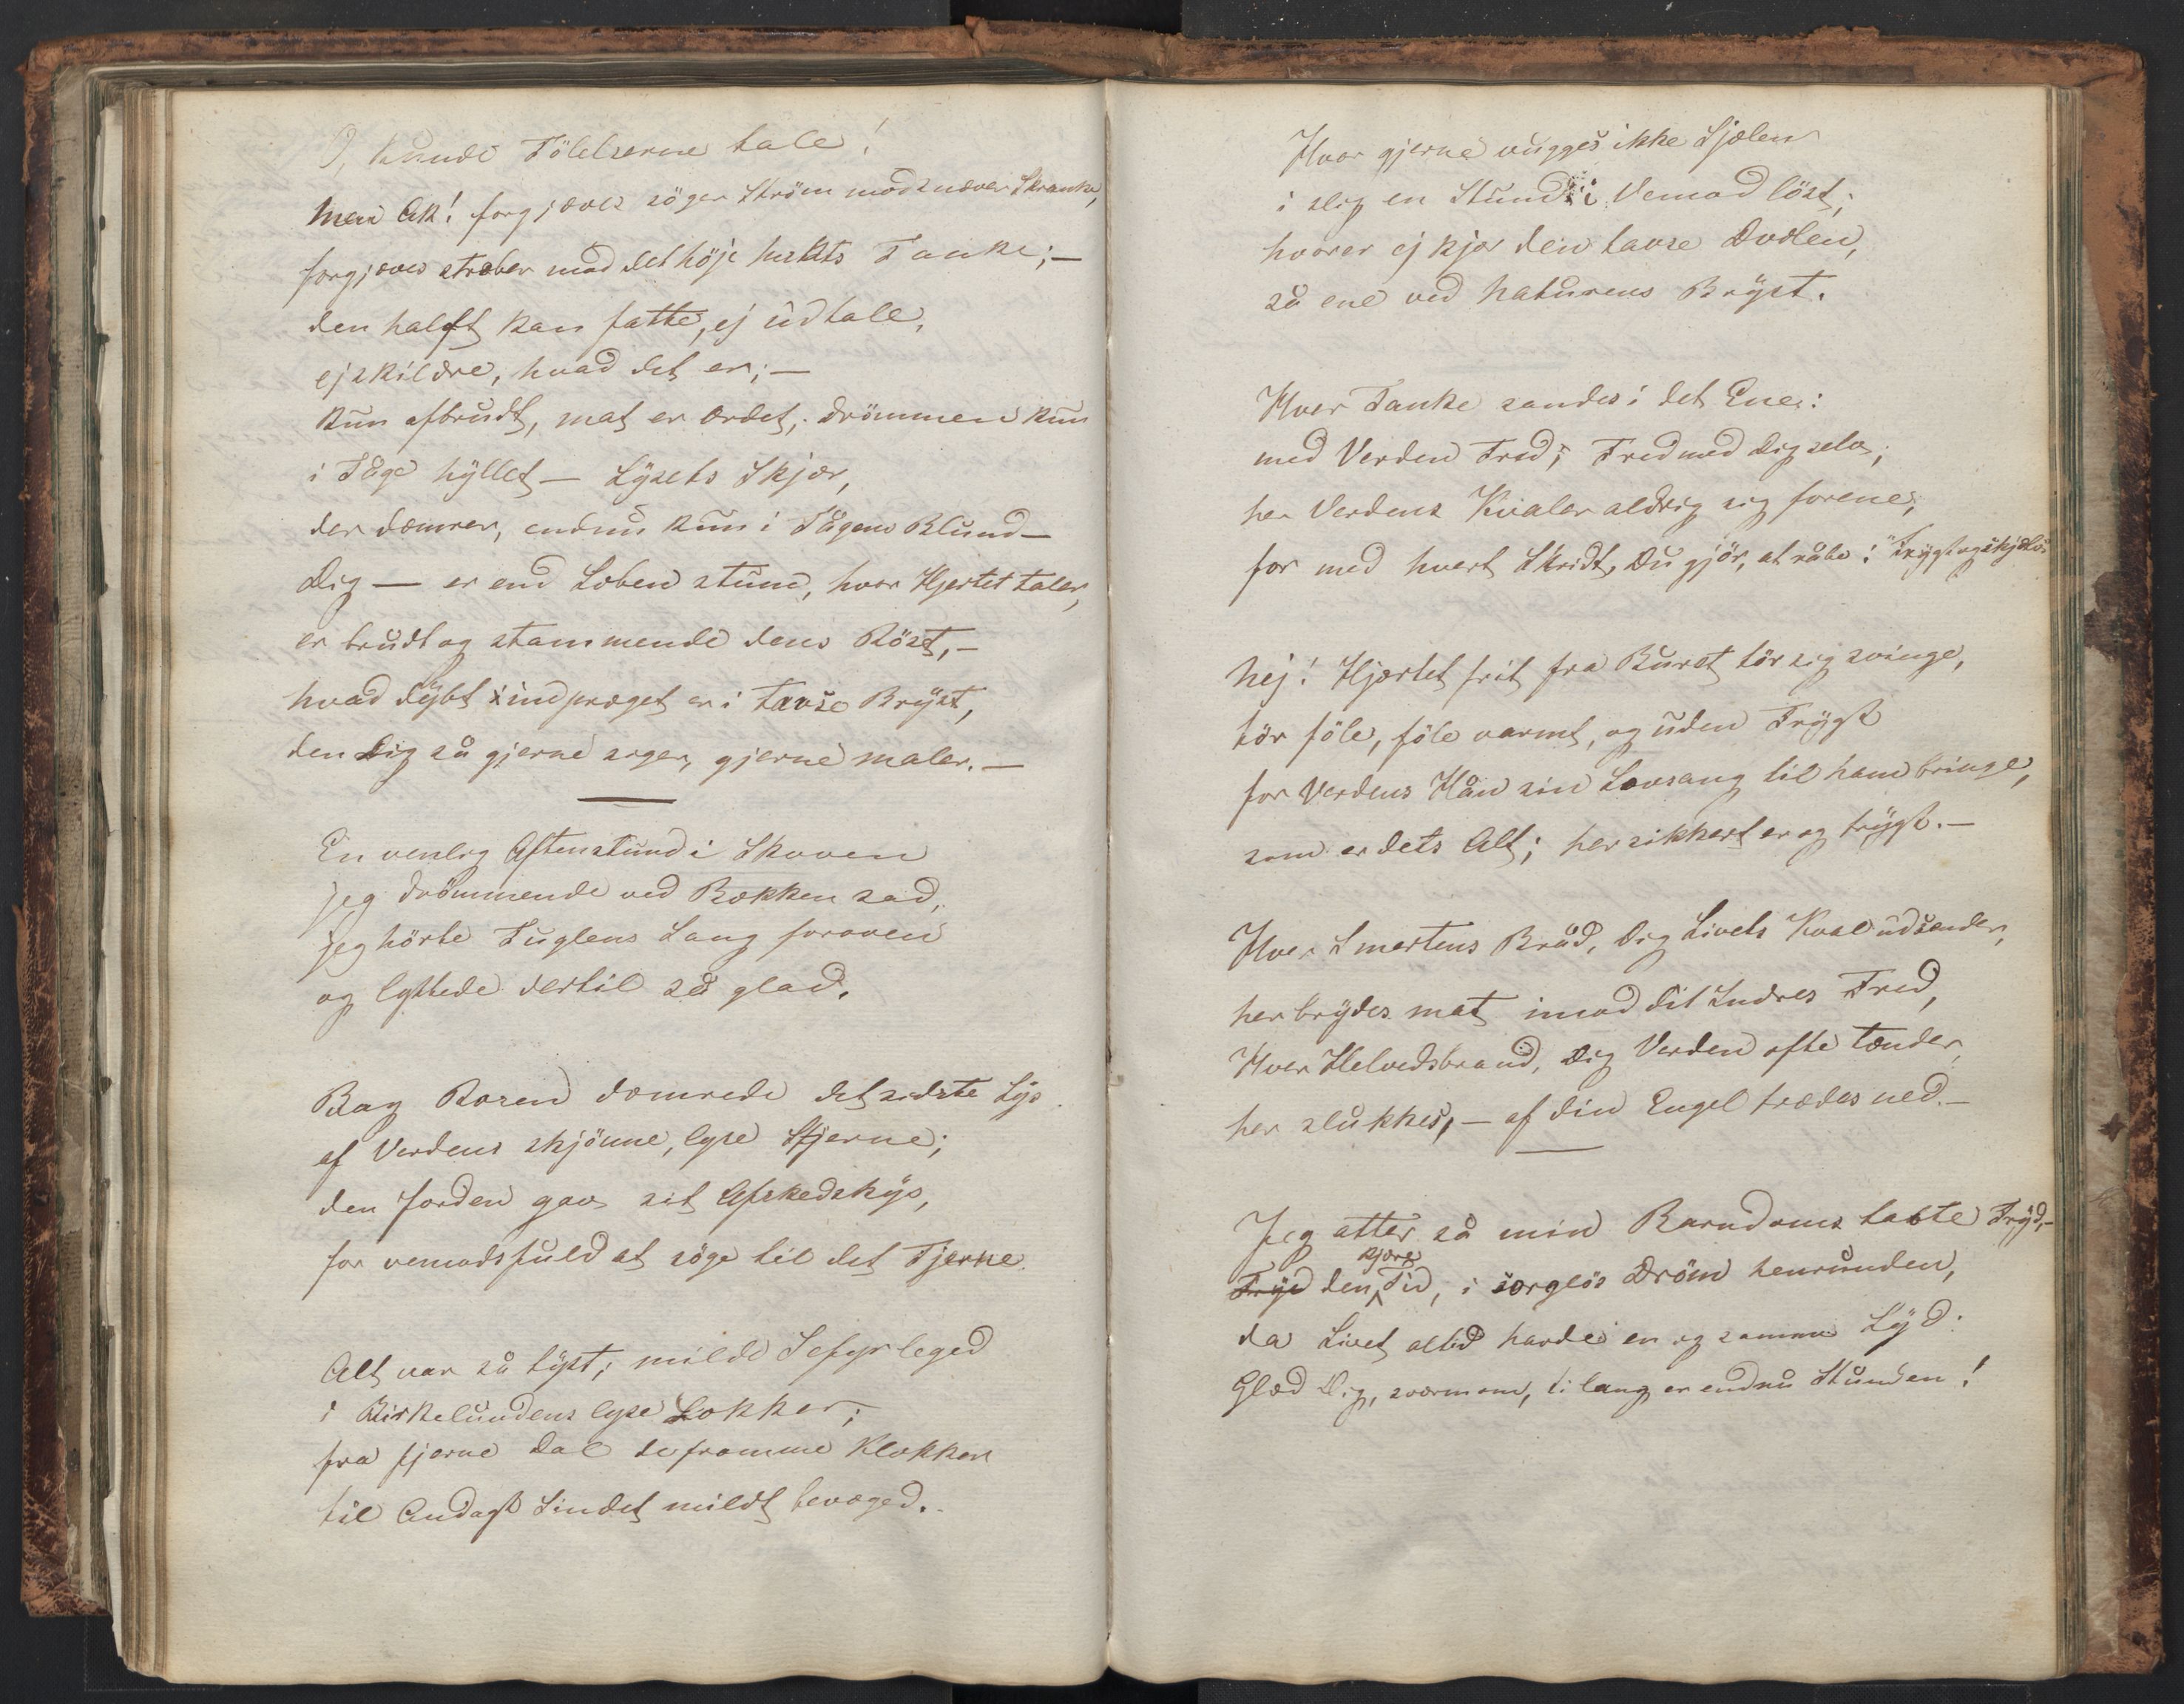 O, kunde Fölelserne tale!
Men Ak! forgjæves söger Ström mod snæver Skranke,
forgjæves stræber mod det höje  Tanke; —
den halft kan fatte, ej udtale,
ej skildre, hvad det er; —
Kun afbrudt, mat er Ordet, Drömmen kun
i Tåge hyllet — Lysets Skjær,
der dæmrer, endnu kun i Tågens Blund —
Dig — er end Læben stum, hvor Hjertet taler,
er brudt og stammende dens Röst, —
hvad dybt indpræget er i tavse Bryst,
den Dig så gjerne siger, gjerne maler. —
En venlig Aftenstund i Skoven
jeg drömmende ved Bækken sad,
jeg hörte Fuglens Sang foroven
og lyttede dertil så glad.
Bag Rosen dæmrede det sidste Lys
af Verdens skjönne, lyse Stjerne;
den Jorden gav sit Afskedskys,
for vemodsfuld at söge til det Fjerne.
Alt var så tyst; milde Sefyr leged
i Birkelundens lyse Lokker;
fra fjerne Dal de fromme Klokker
til Andagt Sindet mildt bevæged.
Hvor gjerne vugges ikke Sjælen
i slig en Stund i Vemod löst;
hvor er ej kjær den tavse Dvælen,
så ene ved Naturens Bryst.
Hver Tanke sandes i det Ene:
med Verden Fred, Fred med Dig selv;
her Verdens Kvaler aldrig sig forene,
for med hvert Skridt, Du gjör, at råbe:
Nej! Hjærtet frit fra Buret tör sig svinge,
tör föle, föle varmt, og uden Frygt
for Verdens Hån sin Lovsang til ham bringe,
som er dets Alt; her sikkert er og trygt. —
Hver Smertens Bråd, Dig Livets Kval udsender,
her brydes mat imod dit Indres Fred,
Hver Helvedsbrand, Dig Verden ofte tænder,
her slukkes, — af din Engel trædes ned. —
Jeg atter så min Barndoms tabte Fryd, —
Fryd den kjære Tid, i sorglös Dröm henrunden,
da Livet altid havde en og samme Lyd:
Glæd Dig, sværm om, ti lang er endnu Stunden!